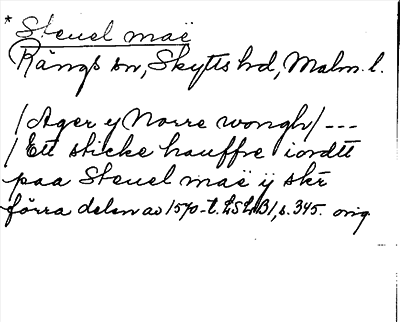 * Steuel maë
Rängs sn, Skytts hd, Malm. l.
/ Ager y Norre wongh / ---
/ Ett sticke hauffre iordtt
paa Steuel maë ÿ skr
förra delen av 1570-t. LSLB1, s. 345. orig